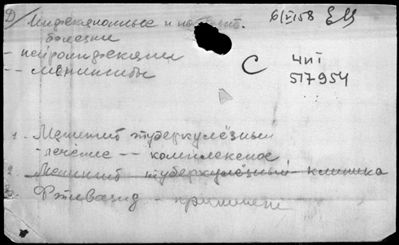 Д) Инфекционные и паразит. 6/VI 58
болезни
- нейроинфекции С чит
-- менингиты 517954
1. Менингит туберкулёзный
- лечение -- комплексное
2. Менингит туберкулёзный - клиника
3. Фтивазид - применен